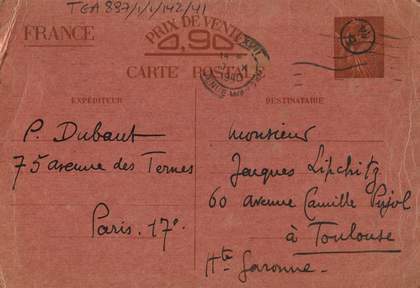 TGA 897/1/1/142/41
FRANCE
PRIX DE VENTE
0,90
CARTE POSTALE
1940
EXPÉDITEUR
P. Dubaut
75 avenue des Ternes
Paris. 17e.
DESTINATAIRE
Monsieur
Jacques Lipchitz
60 avenue Camille Pujol
à Toulouse
Hte Garonne -